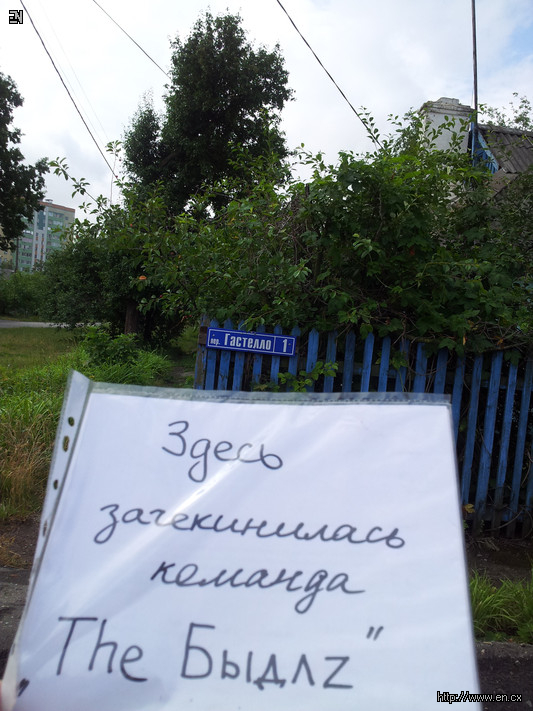 EN
пер. Гастелло 1
Здесь
зачекинилась
команда
„The Быдлz"
http://www.en.cx